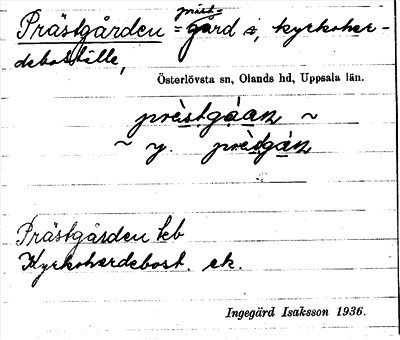 Prästgården = präst= gård a, kyrkoher-
debotälle,
Österlövsta sn, Olands hd, Uppsala län.
prèstgáan ~
~ y. prèsgán
Prästgården keb
Kyrkoherdebost. ek.
Ingegärd Isaksson 1936.